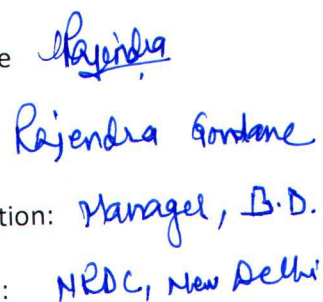 e Rajendra
Rajendra Gondane
tion: Manager, B.D.
: NRDC, New Delhi